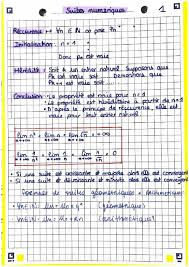 Suites numériques
1
Récurrence → ∀n ∈ ℕ on pose Pn : "
Initialisation : n = 1
Donc P1 est vraie
Hérédité : Soit k un entier naturel. Supposons que
Pk est vraie. Démontrons que
Pk+1 est vraie.
Conclusion : La propriété est vraie pour n = 1
La propriété est héréditaire à partir de n = 1
D'après le principe de récurrence, elle est
vraie pour tout entier naturel
lim n² = lim n = lim √n = +∞
lim 1/n² = lim 1/n = lim 1/√n = 0
• Si une suite est croissante et majorée alors elle est convergente
• Si une suite est décroissante et minorée alors elle est convergente
Formule de suites géométriques et arithmétiques
(géométrique)
(arithmétique)